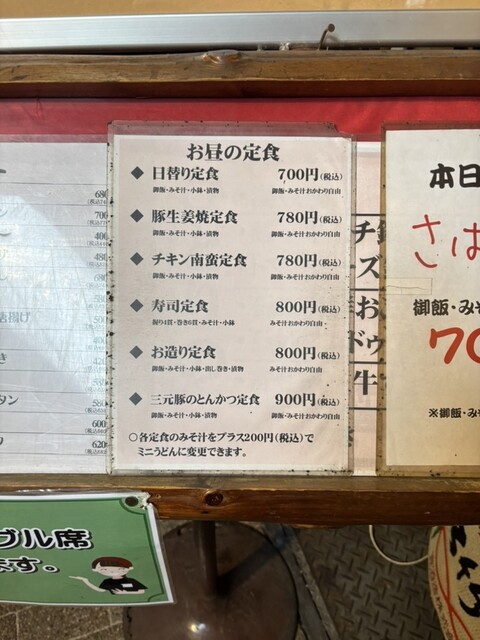 お昼の定食
◆ 日替り定食 700円(税込)
御飯・みそ汁・小鉢・漬物 御飯・みそ汁おかわり自由
◆ 豚生姜焼定食 780円(税込)
御飯・みそ汁・小鉢・漬物 御飯・みそ汁おかわり自由
◆ チキン南蛮定食 780円(税込)
御飯・みそ汁・小鉢・漬物 御飯・みそ汁おかわり自由
◆ 寿司定食 800円(税込)
握り4貫・巻き6貫・みそ汁・小鉢 みそ汁おかわり自由
◆ お造り定食 800円(税込)
御飯・みそ汁・小鉢・出し巻き・漬物 みそ汁おかわり自由
◆ 三元豚のとんかつ定食 900円(税込)
御飯・みそ汁・小鉢・漬物 御飯・みそ汁おかわり自由
○各定食のみそ汁をプラス200円(税込)で
ミニうどんに変更できます。
680
700
400
580
580
600
620
チ
ズ
お
ドゥ
牛
本日
さば
御飯・みそ
70
※御飯・みそ
ブル席
ます。